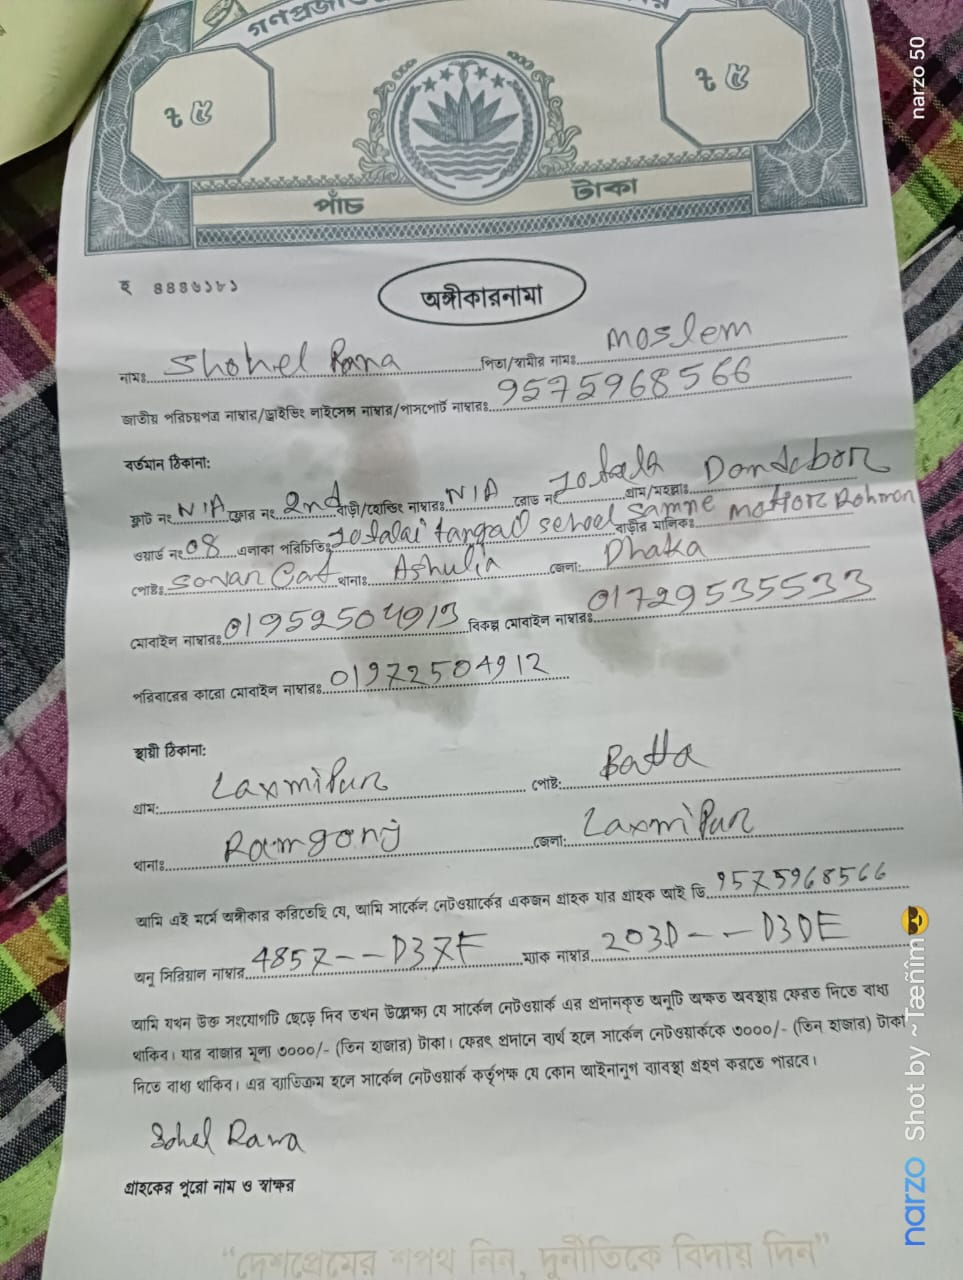 ৳ ৫
৳ ৫
পাঁচ টাকা
৪৪৪৬১৮১
অঙ্গীকারনামা
নামঃ Shohel Rana পিতা/স্বামীর নামঃ moslem
জাতীয় পরিচয়পত্র নাম্বার/ড্রাইভিং লাইসেন্স নাম্বার/পাসপোর্ট নাম্বারঃ 9575968566
বর্তমান ঠিকানা:
ফ্লাট নং N/A ফ্লোর নং 2nd বাড়ী/হোল্ডিং নাম্বারঃ N/A রোড নং গ্রাম/মহল্লাঃ Dondabor
ওয়ার্ড নং 08 এলাকা পরিচিতিঃ tangail school samne বাড়ীর মালিকঃ Rohman
পোষ্টঃ থানাঃ Ashulia জেলা: Dhaka
মোবাইল নাম্বারঃ 01952504913 বিকল্প মোবাইল নাম্বারঃ 01729535533
পরিবারের কারো মোবাইল নাম্বারঃ 01972504912
স্থায়ী ঠিকানা:
গ্রাম: Laxmipur পোষ্ট: Batta
থানাঃ Ramgonj জেলা: Laxmipur
আমি এই মর্মে অঙ্গীকার করিতেছি যে, আমি সার্কেল নেটওয়ার্কের একজন গ্রাহক যার গ্রাহক আই ডি 9575968566
অনু সিরিয়াল নাম্বার 4857--D37F ম্যাক নাম্বার 203D--D3DE
আমি যখন উক্ত সংযোগটি ছেড়ে দিব তখন উল্লেক্ষ্য যে সার্কেল নেটওয়ার্ক এর প্রদানকৃত অনুটি অক্ষত অবস্থায় ফেরত দিতে বাধ্য
থাকিব। যার বাজার মূল্য ৩০০০/- (তিন হাজার) টাকা। ফেরৎ প্রদানে ব্যর্থ হলে সার্কেল নেটওয়ার্ককে ৩০০০/- (তিন হাজার) টাকা
দিতে বাধ্য থাকিব। এর ব্যাতিক্রম হলে সার্কেল নেটওয়ার্ক কর্তৃপক্ষ যে কোন আইনানুগ ব্যাবস্থা গ্রহণ করতে পারবে।
Sohel Rana
গ্রাহকের পুরো নাম ও স্বাক্ষর
“দেশপ্রেমের শপথ নিন, দুর্নীতিকে বিদায় দিন”
narzo 50
narzo Shot by ~Tæñîm😎